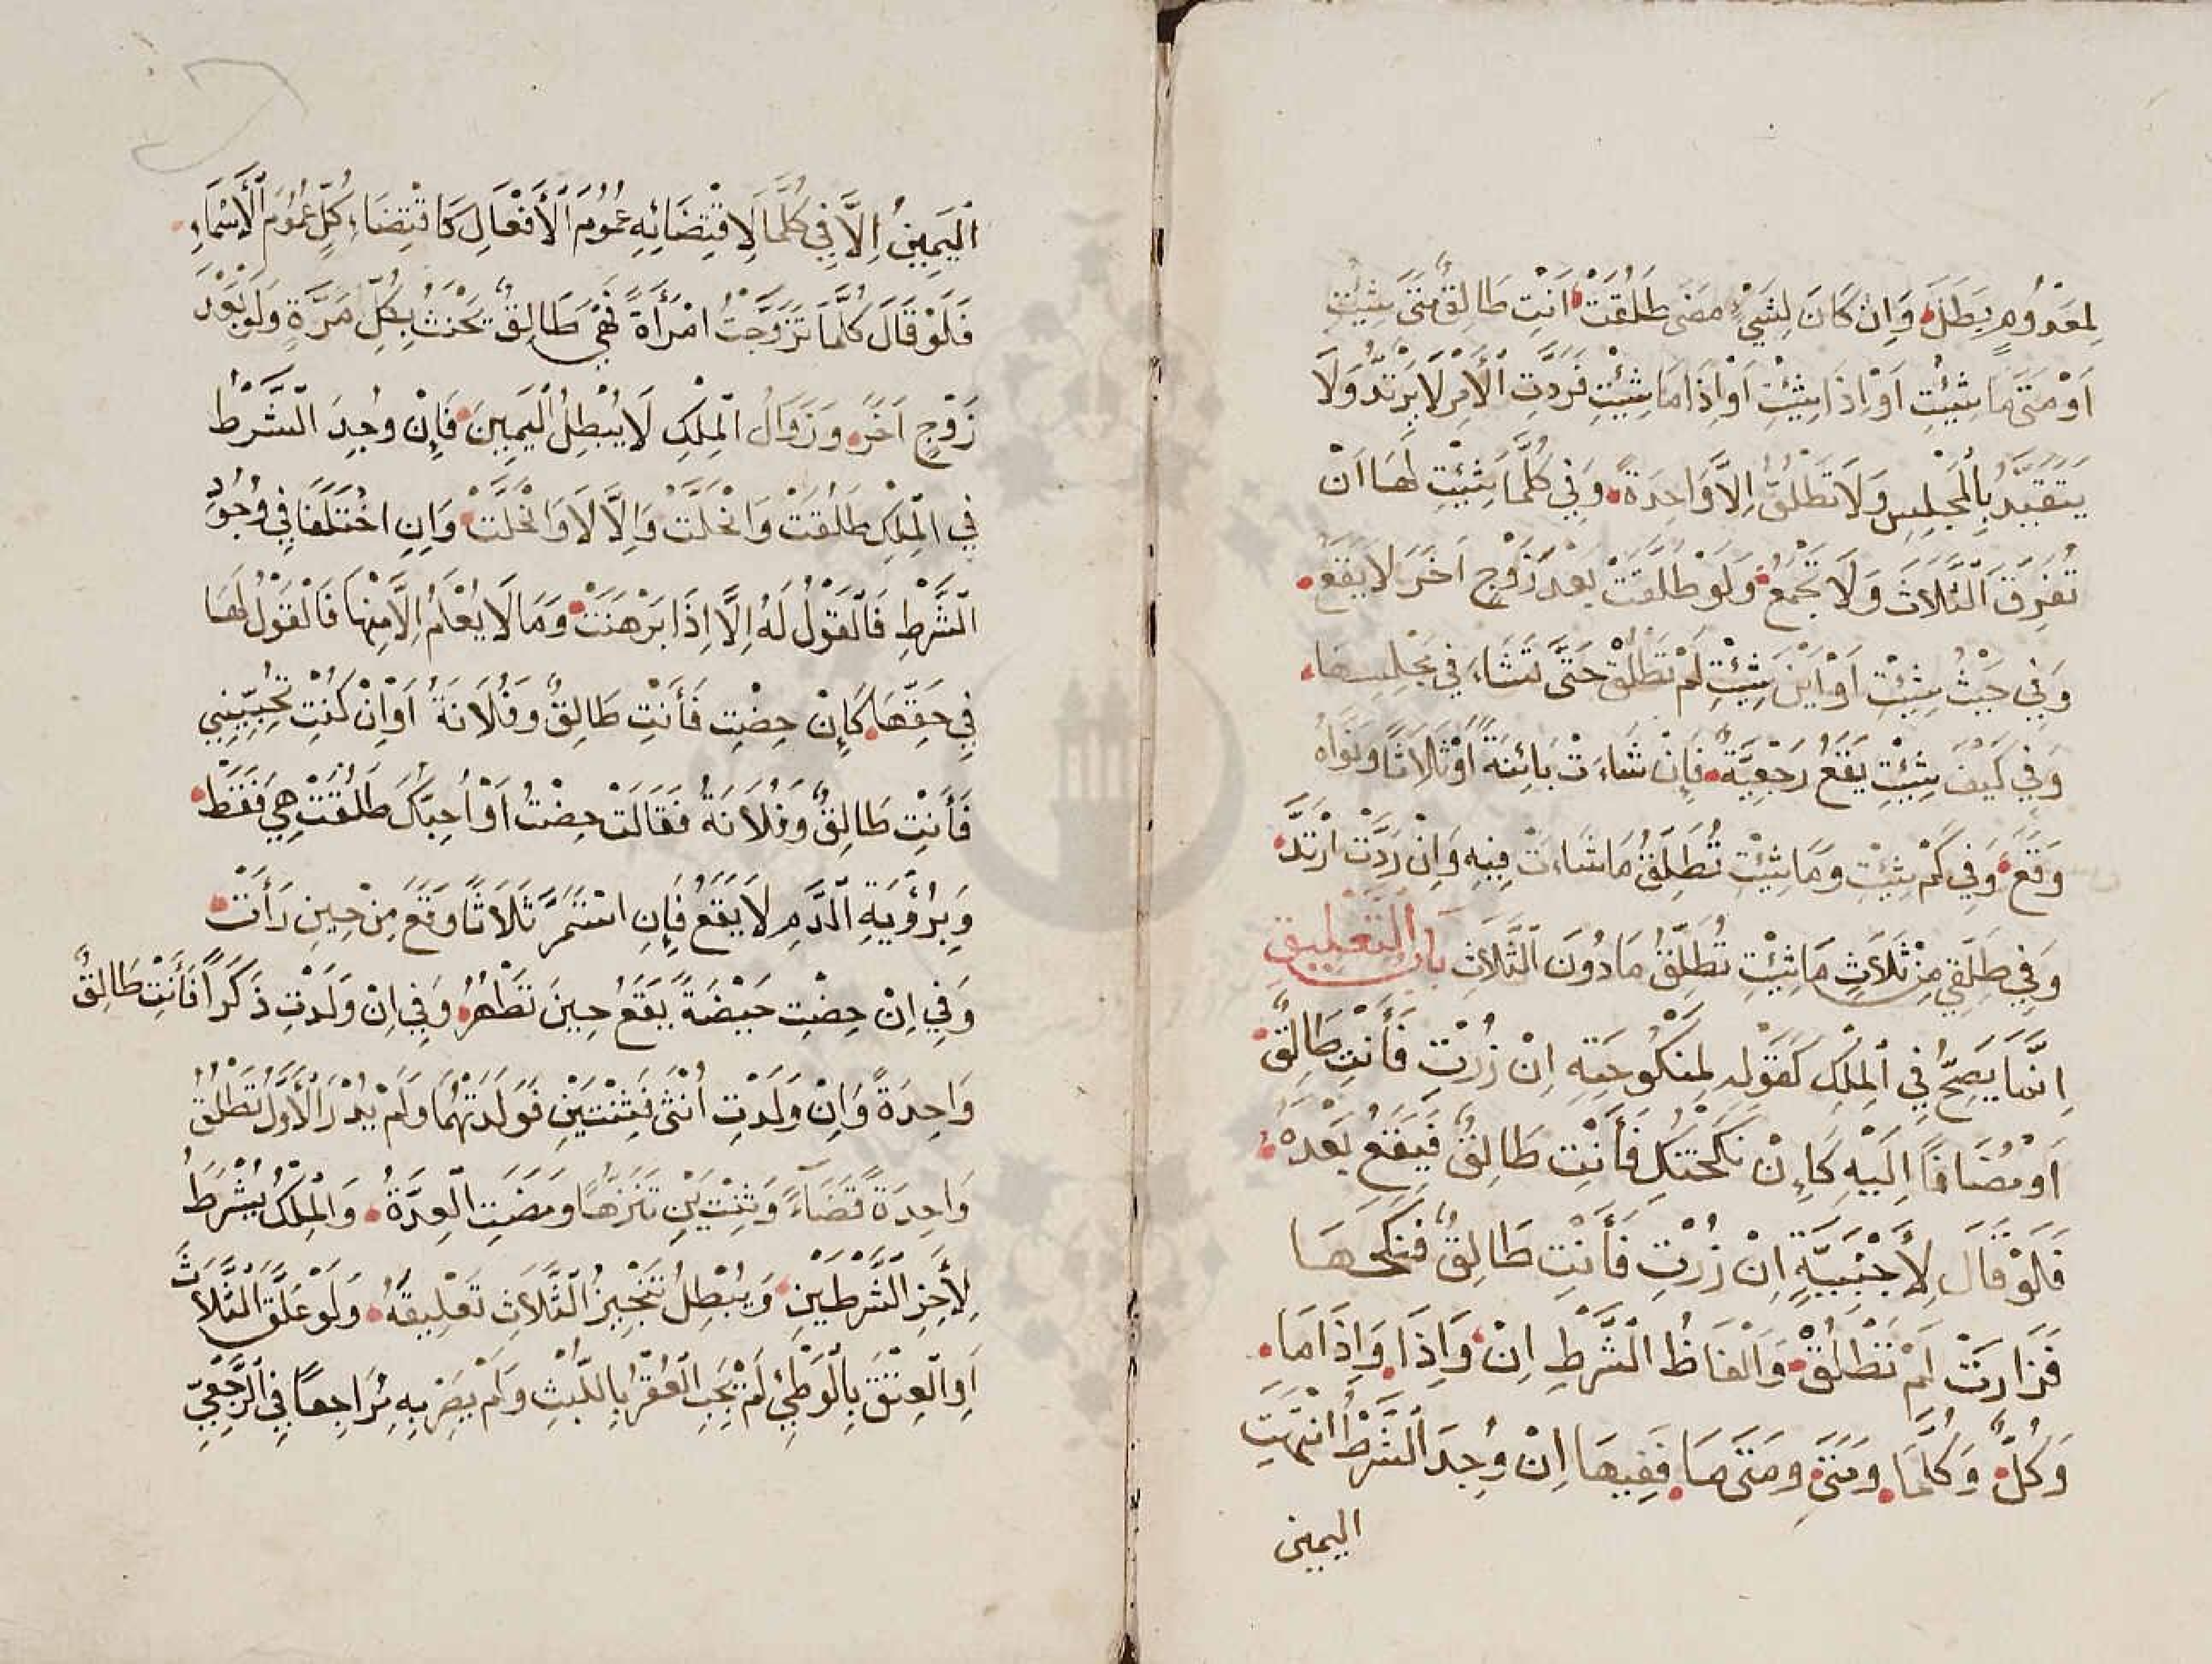 لِمَعْدُومٍ بَطَلَ وَاِنْ كَانَ لِشَيْءٍ مَضَى طَلُقَتْ اَنْتِ طَالِقٌ مَتَى شِئْتِ
اَوْ مَتَى مَا شِئْتِ اَوْ اِذَا شِئْتِ اَوْ اِذَا مَا شِئْتِ فَرَدَّتِ الْاَمْرَ لَا يَرْتَدُّ وَلَا
يَتَقَيَّدُ بِالْمَجْلِسِ وَلَا تَطْلُقُ اِلَّا وَاحِدَةً وَفِي كُلَّمَا شِئْتِ لَهَا اَنْ
تُفَرِّقَ الثَّلَاثَ وَلَا تَجْمَعُ وَلَوْ طَلَّقَتْ بَعْدَ زَوْجٍ اَخَرَ لَا يَقَعُ
وَفِي حَيْثُ شِئْتِ اَوْ اَيْنَ شِئْتِ لَمْ تَطْلُقْ حَتَّى تَشَاءَ فِي مَجْلِسِهَا
وَفِي كَيْفَ شِئْتِ يَقَعُ رَجْعِيَّةٌ فَاِنْ شَاءَتْ بَائِنَةً اَوْ ثَلَاثًا وَنَوَاهُ
وَقَعَ وَفِي كَمْ شِئْتِ وَمَا شِئْتِ تُطَلِّقُ مَا شَاءَتْ فِيهِ وَاِنْ رَدَّتْ ارْتَدَّ
وَفِي طَلِّقِي مِنْ ثَلَاثٍ مَا شِئْتِ تُطَلِّقُ مَا دُونَ الثَّلَاثِ بَابُ التَّعْلِيقِ
اِنَّمَا يَصِحُّ فِي الْمِلْكِ كَقَوْلِهِ لِمَنْكُوحَتِهِ اِنْ زُرْتِ فَأَنْتِ طَالِقٌ
اَوْ مُضَافًا اِلَيْهِ كَاِنْ نَكَحْتُكِ فَأَنْتِ طَالِقٌ فَيَقَعُ بَعْدَهُ
فَلَوْ قَالَ لِأَجْنَبِيَّةٍ اِنْ زُرْتِ فَأَنْتِ طَالِقٌ فَنَكَحَهَا
فَزَارَتْ لَمْ تَطْلُقْ وَالْفَاظُ الشَّرْطِ اِنْ وَاِذَا وَاِذَا مَا
وَكُلٌّ وَكُلَّمَا وَمَتَى وَمَتَى مَا فَفِيهَا اِنْ وُجِدَ الشَّرْطُ انْتَهَتِ
اليمين
الْيَمِينُ اِلَّا فِي كُلَّمَا لِاقْتِضَائِهِ عُمُومَ الْأَفْعَالِ كَاقْتِضَاءِ كُلٍّ عُمُومَ الْأَسْمَاءِ
فَلَوْ قَالَ كُلَّمَا تَزَوَّجْتُ امْرَأَةً فَهِيَ طَالِقٌ يَحْنَثُ بِكُلِّ مَرَّةٍ وَلَوْ بَعْدَ
زَوْجٍ اَخَرَ وَزَوَالُ الْمِلْكِ لَا يُبْطِلُ الْيَمِينَ فَاِنْ وُجِدَ الشَّرْطُ
فِي الْمِلْكِ طَلُقَتْ وَانْحَلَّتْ وَاِلَّا لَا وَانْحَلَّتْ وَاِنِ اخْتَلَفَا فِي وُجُودِ
الشَّرْطِ فَالْقَوْلُ لَهُ اِلَّا اِذَا بَرْهَنَتْ وَمَا لَا يُعْلَمُ اِلَّا مِنْهَا فَالْقَوْلُ لَهَا
فِي حَقِّهَا كَاِنْ حِضْتِ فَأَنْتِ طَالِقٌ وَفُلَانَةُ اَوْ اِنْ كُنْتِ تُحِبِّينِي
فَأَنْتِ طَالِقٌ وَفُلَانَةُ فَقَالَتْ حِضْتُ اَوْ اُحِبُّكَ طَلُقَتْ هِيَ فَقَطْ
وَبِرُؤْيَةِ الدَّمِ لَا يَقَعُ فَاِنِ اسْتَمَرَّ ثَلَاثًا وَقَعَ مِنْ حِينِ رَأَتْ
وَفِي اِنْ حِضْتِ حَيْضَةً يَقَعُ حِينَ تَطْهُرُ وَفِي اِنْ وَلَدْتِ ذَكَرًا فَأَنْتِ طَالِقٌ
وَاحِدَةً وَاِنْ وَلَدْتِ اُنْثَى فَثِنْتَيْنِ فَوَلَدَتْهُمَا وَلَمْ يُدْرَ الْأَوَّلُ تَطْلُقُ
وَاحِدَةً قَضَاءً وَثِنْتَيْنِ تَنَزُّهًا وَمَضَتِ الْعِدَّةُ وَالْمِلْكُ يُشْرَطُ
لِأَخِرِ الشَّرْطَيْنِ وَيُبْطِلُ تَنْجِيزُ الثَّلَاثِ تَعْلِيقَهُ وَلَوْ عَلَّقَ الثَّلَاثَ
اَوِ الْعِتْقَ بِالْوَطْئِ لَمْ يَجِبِ الْعُقْرُ بِاللُّبْثِ وَلَمْ يَصِرْ بِهِ مُرَاجِعًا فِي الرَّجْعِيِّ